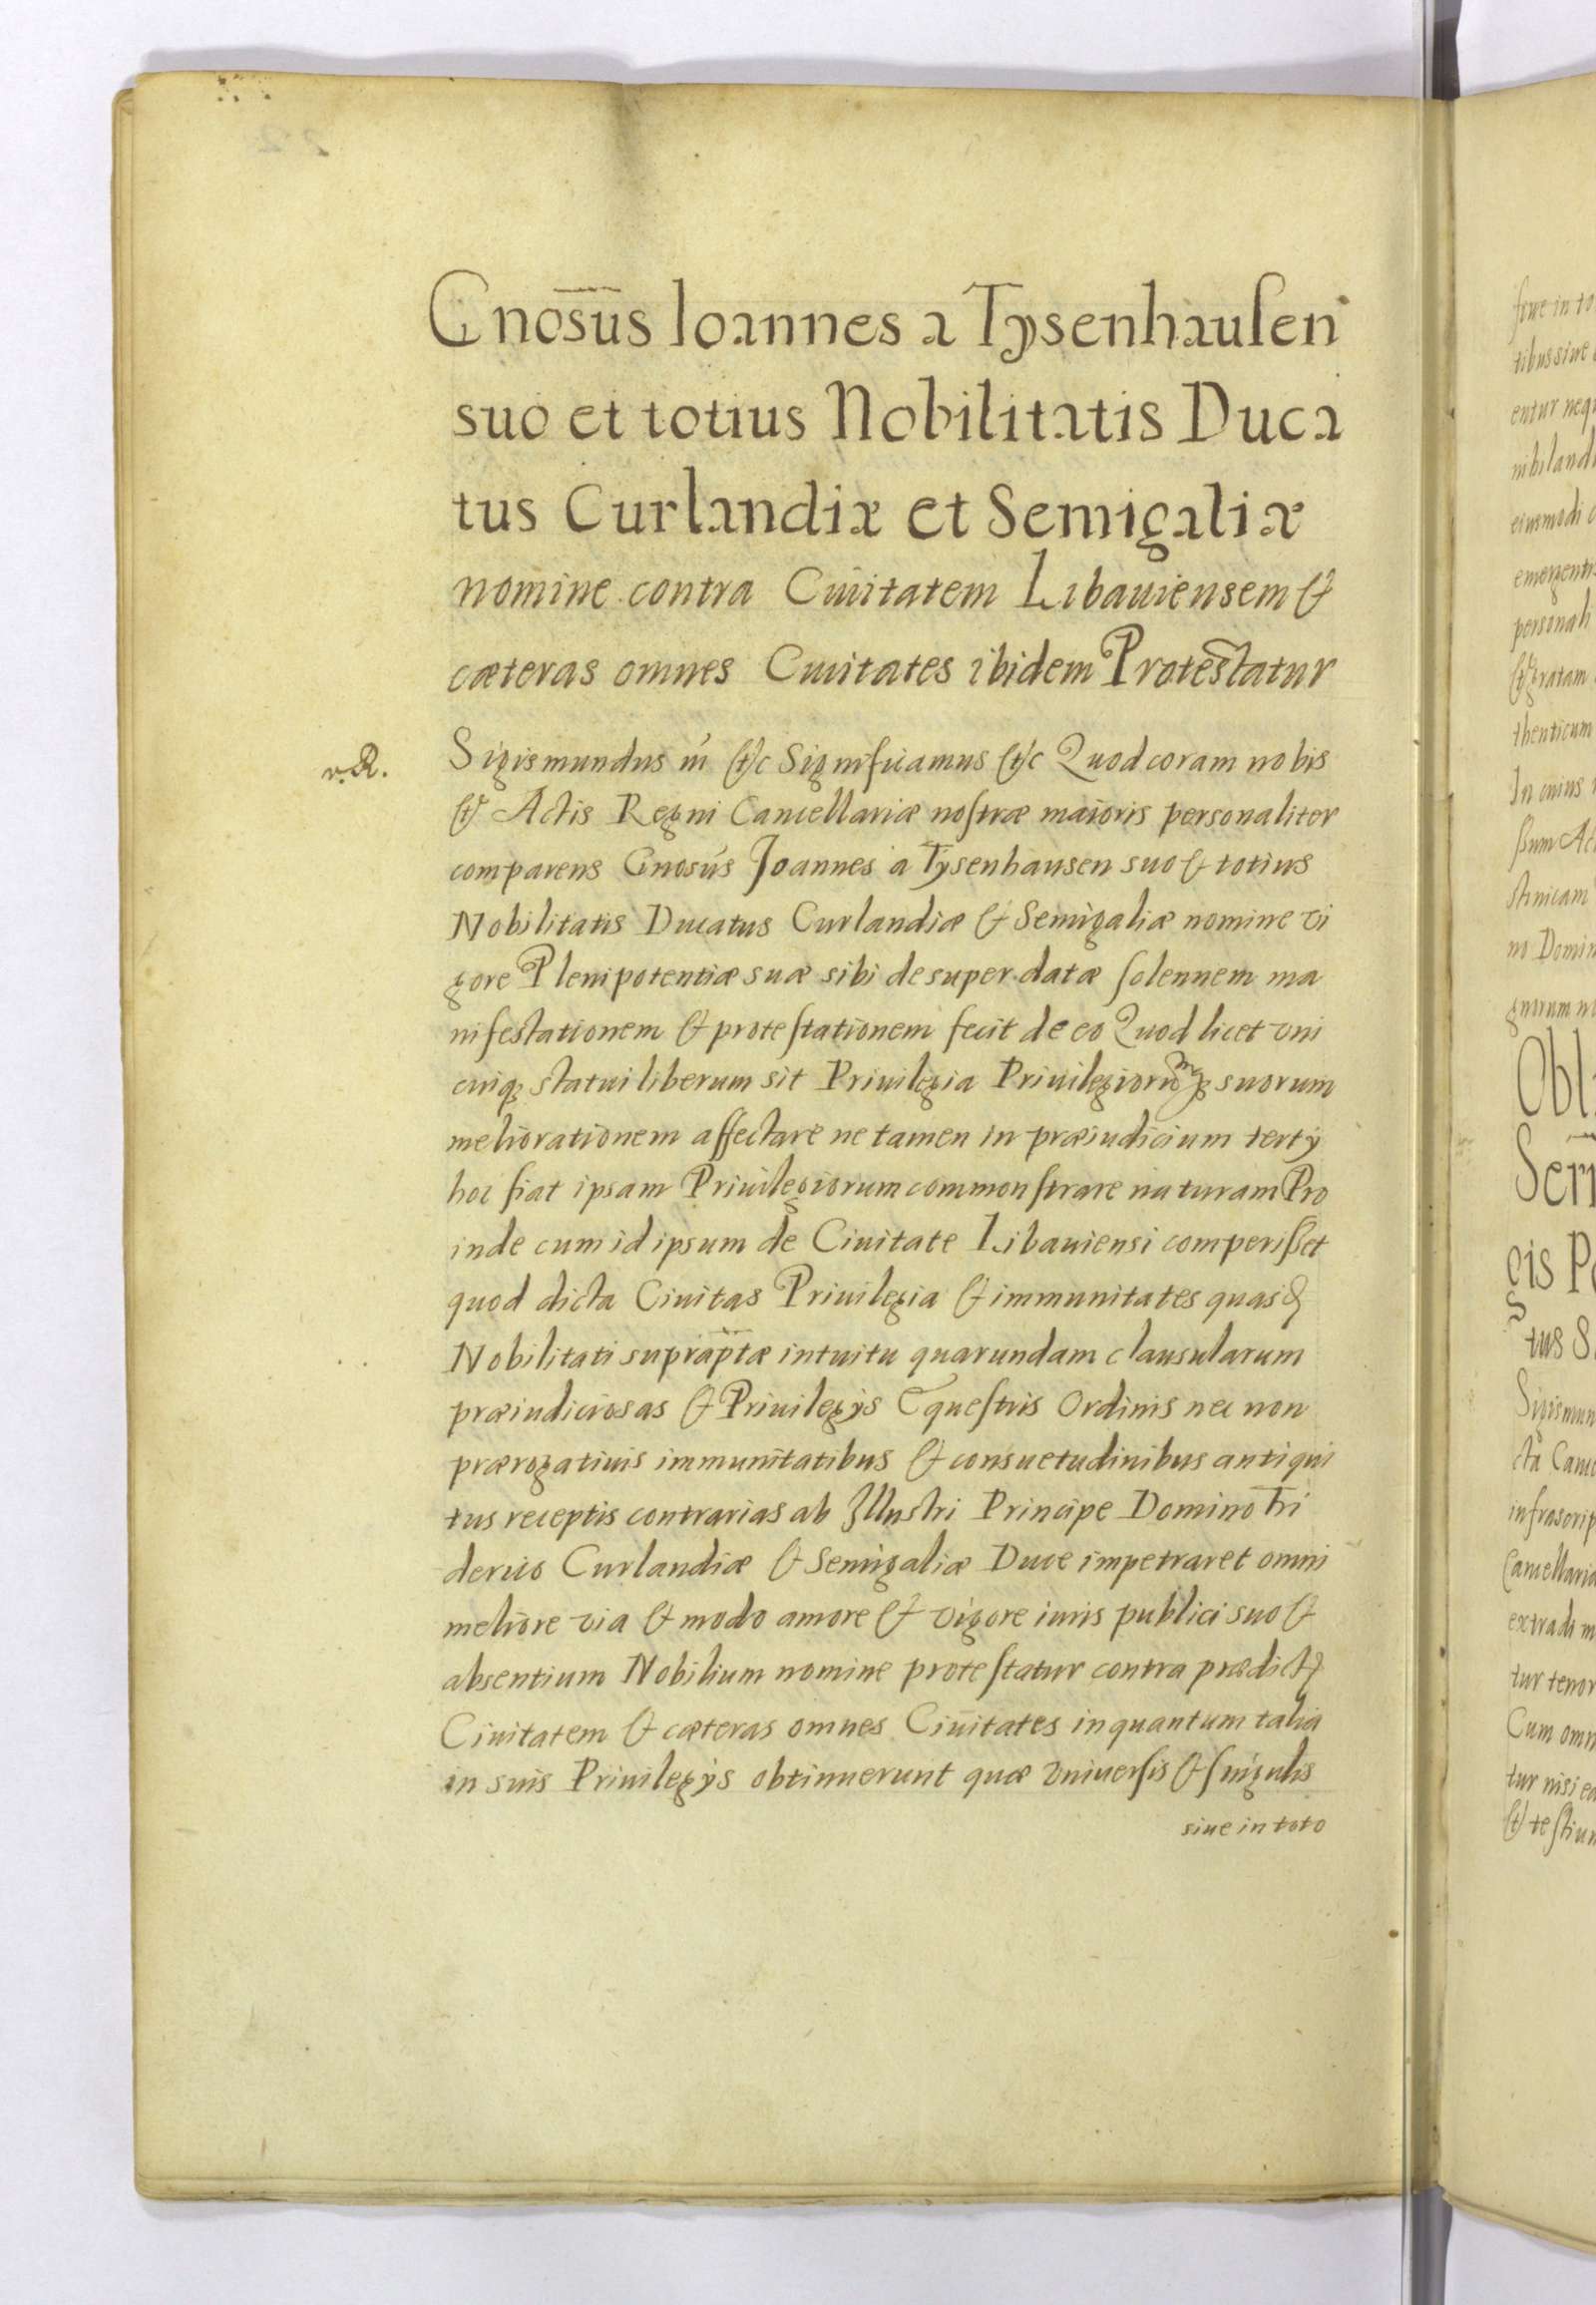 Gnosus Ioannes a Tysenhausen
suo et totius Nobilitatis Duca
tus Curlandiæ et Semigaliæ
nomine contra Ciuitatem Libauiensem &
cæteras omnes Ciuitates ibidem Protestatur
r.R.
Sigismundus iii &c Significamus &c Quod coram nobis
& Actis Regni Cancellariæ nostræ maioris personaliter
comparens Gnosus Joannes a Tysenhausen suo & totius
Nobilitatis Ducatus Curlandiæ & Semigaliæ nomine vi
gore Plenipotentiæ suæ sibi desuper datæ solennem ma
nifestationem & protestationem fecit de eo Quod licet vni
cuiq; statui liberum sit Priuilegia Priuilegiorumq; suorum
meliorationem affectare ne tamen in præiudicium tertij
hoc fiat ipsam Priuilegiorum commonstrare naturam Pro
inde cum id ipsum de Ciuitate Libauiensi comperisset
quod dicta Ciuitas Priuilegia & immunitates quasd
Nobilitati supraptæ intuitu quarundam clausularum
præiudiciosas & Priuilegijs Equestris Ordinis nec non
prærogatiuis immunitatibus & consuetudinibus antiqui
tus receptis contrarias ab Illustri Principe Domino Fri
derico Curlandiæ & Semigaliæ Duce impetraret omni
meliore via & modo amore & vigore iuris publici suo &
absentium Nobilium nomine protestatur contra prædict
Ciuitatem & cæteras omnes Ciuitates inquantum talia
in suis Priuilegijs obtinuerunt quæ vniuersis & singulis
siue in toto
siue in to
tibus siue
entur neq
nihiland
eiusmodi
emergenti
personali
& gratam
thenticum
In cuius
ssum Act
stinicam
no Domin
gnorum n
Obl
Seri
gis P
tus S
Sigismun
cta Canc
infrascrip
Cancellaria
extradi m
tur tenor
Cum omn
tur nisi ea
& testium